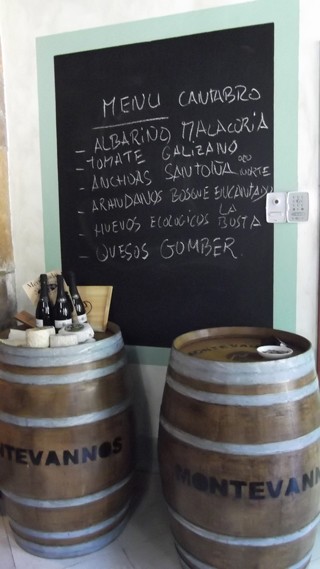 MENU CANTABRO
- ALBARIÑO MALACORIA
- TOMATE GALIZANO
- ANCHOAS SANTOÑA ORO NORTE
- ARANDANOS BOSQUE ENCANTADO
- HUEVOS ECOLOGICOS LA BUSTA
- QUESOS GOMBER.
NTEVANNOS
MONTEVANN